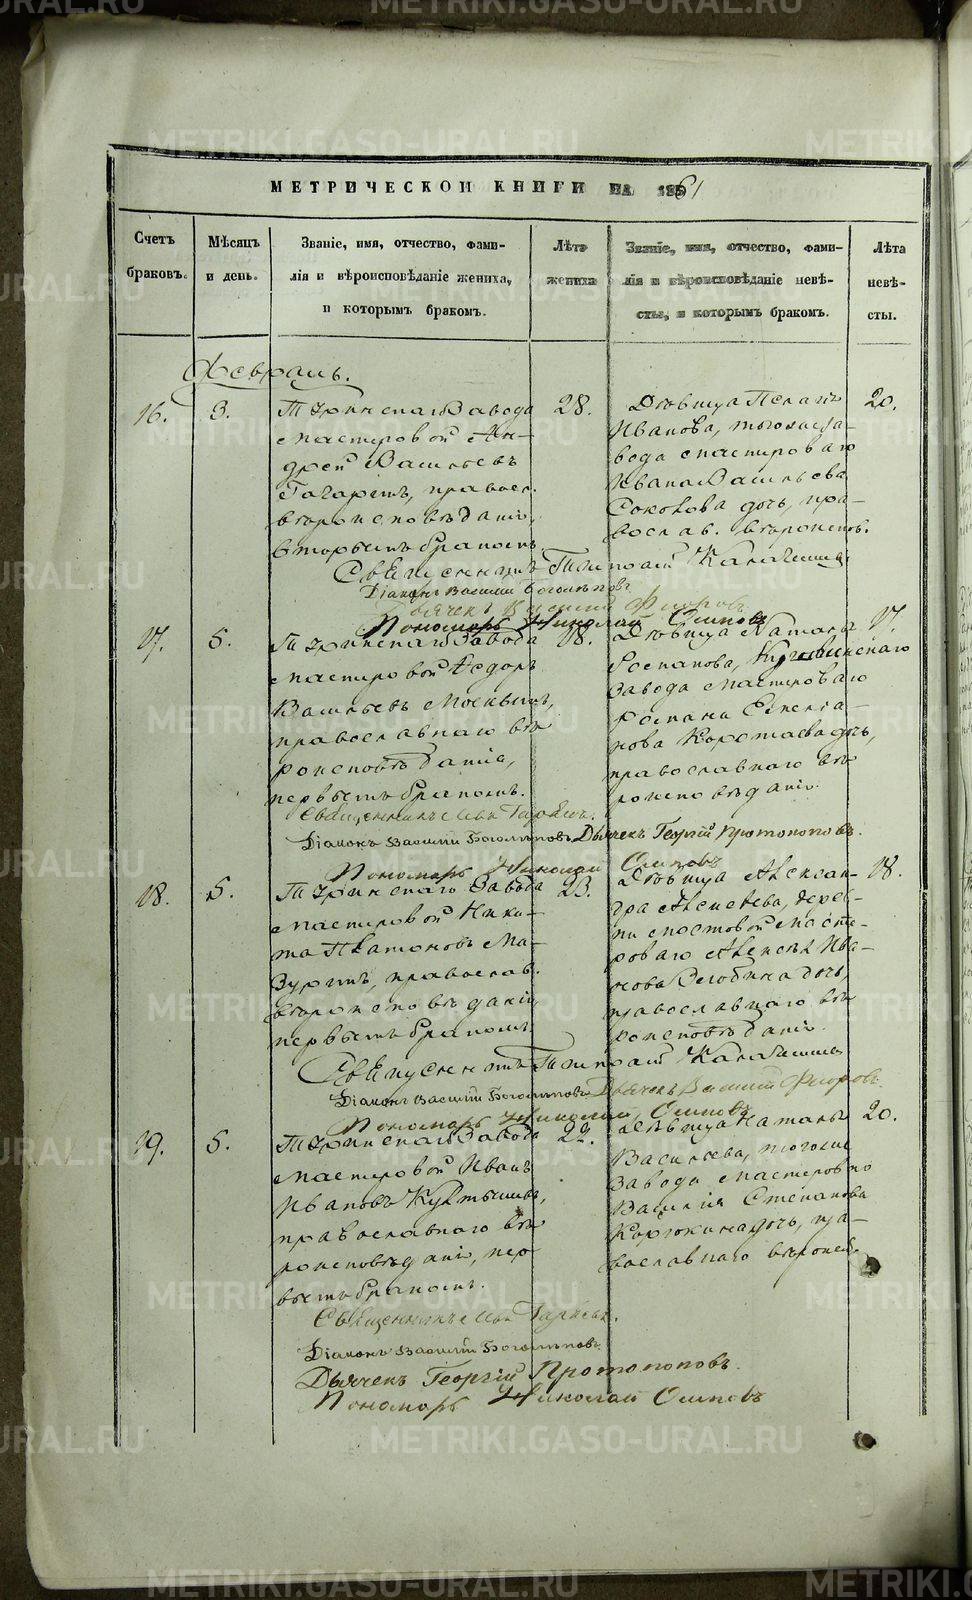 МЕТРИЧЕСКОЙ КНИГИ НА 1861
Счетъ браковъ.
Мѣсяцъ и день.
Званіе, имя, отчество, фами-
лія и вѣроисповѣданіе жениха,
и которымъ бракомъ.
Лѣта жениха
Званіе, имя, отчество, фами-
лія и вѣроисповѣданіе невѣ-
сты, и которымъ бракомъ.
Лѣта невѣ-
сты.
Февраль.
16. 3.
завода
мастеровой Ан-
дрей Васильевъ
правосл.
вѣроисповѣданія,
вторымъ бракомъ
28.
Дѣвица
Иванова, тогоже за-
вода мастероваго
Ивана Васильева
Соколова дочь, пра-
вослав. вѣроиспов.
20.
Священникъ
Діаконъ Василій Боголѣповъ
Дьячекъ Василій Флоровъ
Пономарь Николай Осиповъ
17. 5.
завода
мастеровой Ѳедоръ
Васильевъ Москвинъ,
православнаго вѣ-
роисповѣданія,
первымъ бракомъ.
18.
Дѣвица Наталья
Романова,
завода мастероваго
Романа
Коротаева дочь,
православнаго вѣ-
роисповѣданія.
17.
Священникъ
Діаконъ Василій Боголѣповъ Дьячекъ Георгій Протопоповъ.
Пономарь Николай Осиповъ
18. 5.
завода
мастеровой Ники-
та Платоновъ Ма-
зуринъ, православ.
вѣроисповѣданія,
первымъ бракомъ.
23.
Дѣвица Алексан-
дра Алексѣева, дерев-
ни Мостовой масте-
роваго Алексѣя Ива-
нова дочь,
православнаго вѣ-
роисповѣданія.
18.
Священникъ
Діаконъ Василій Боголѣповъ Дьячекъ Василій Флоровъ.
Пономарь Николай Осиповъ
19. 5.
завода
мастеровой Иванъ
Ивановъ
православнаго вѣ-
роисповѣданія, пер-
вымъ бракомъ.
22.
Дѣвица Наталья
Васильева, тогоже
завода мастероваго
Василія Степанова
Корюкина дочь, пра-
вославнаго вѣроисп.
20.
Священникъ
Діаконъ Василій Боголѣповъ
Дьячекъ Георгій Протопоповъ.
Пономарь Николай Осиповъ
METRIKI.GASO-URAL.RU